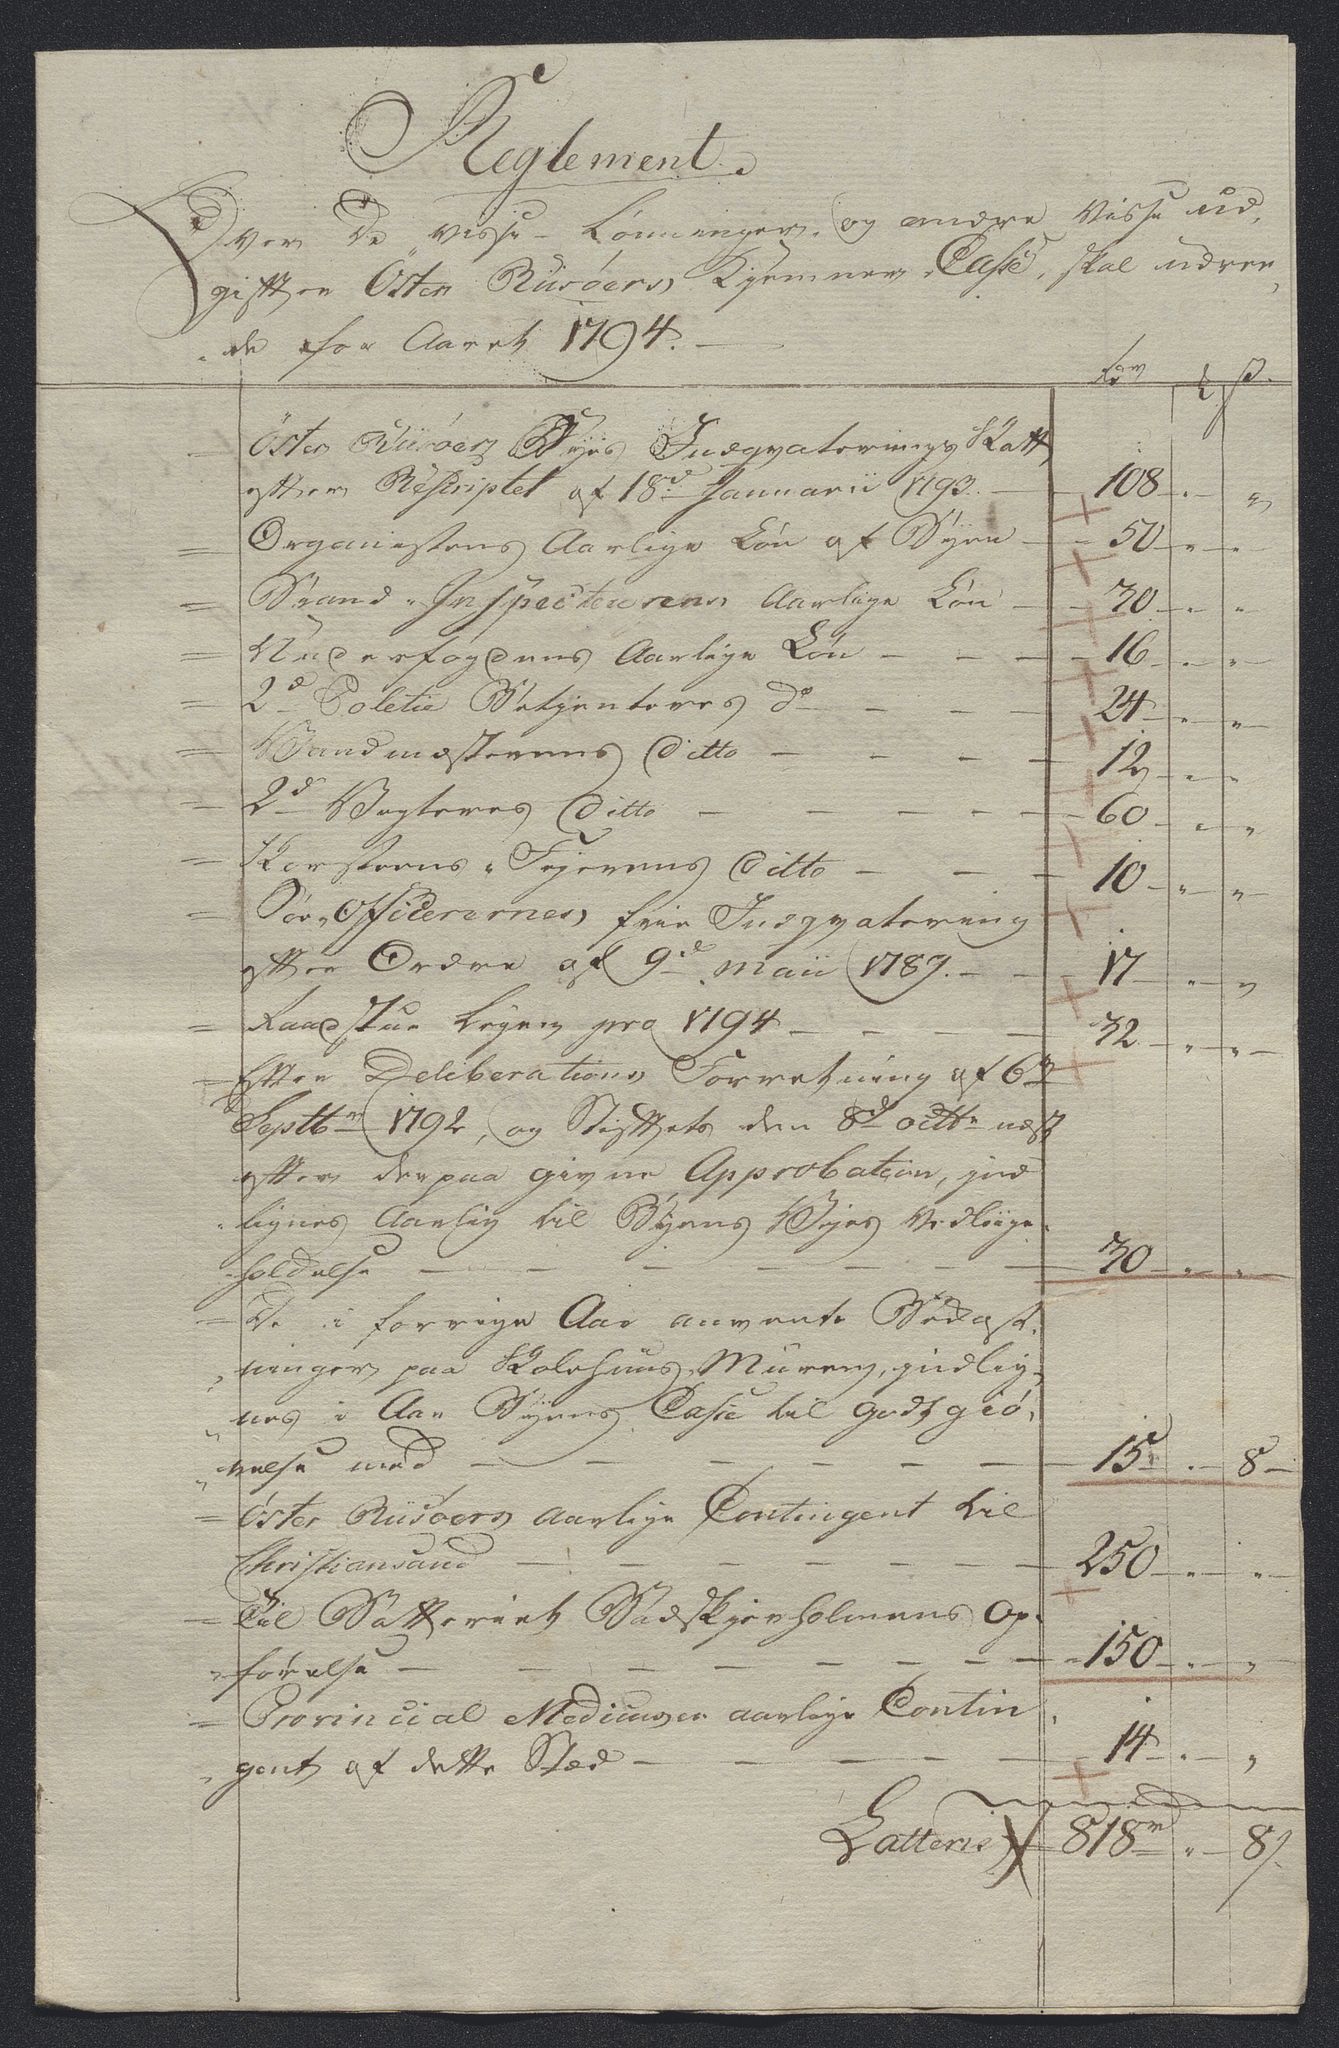 Reglement.
Over De visse Lønninger, og andre visse ud„
giftter Öster Riisøers Kjemner Casse, skal udree„
„de for Aaret 1794.
Rdr ß.
Öster Riisøers Byes Indqvaterings Skatt
efter Rescriptet af 18d Januarii 1793. 108 „ „
= Organistens Aarlige Løn af Byen 50 „ „
= Brand„Inspecteurens Aarlige Løn 30 „ „
= Underfogdens Aarlige Løn 16 „ „
= 2d Politie Betjenteres do 24 „ „
= Vandmesterens Ditto 12 „ „
= 2d Vegteres Ditto 60 „ „
= Skorsteens„Feyerens Ditto 10 „ „
= Søe„Officerernes frie Indqvatering
efter Ordre af 9d maii 1789. 17 „ „
= Raadstue Leyen pro 1794 32 „ „
= Efter Deliberations Forretning af 6te
Septbr 1792, og Stiftets den 8d octbr næst
efter derpaa givne Approbation, ind
„lignes Aarlig til Byens Veyes Vedliige„
„holdelse 30 „ „
= De i forrige Aar anvente Bekost„
„ninger paa Skolehuus Muren, indlig„
„nes i Aar Byens Casse til godtgiø„
„relse med 15 „ 8
= Öster Riisøers aarlige Contingent til
Christiansand 250 „ „
= Til Batteriet Badskjerholmens Op„
„førelse 150 „ „
= Provincial Medicuser aarlige Contin„
„gent af dette Sted 14 „ „
Latterie 818 rd „ 8ß.